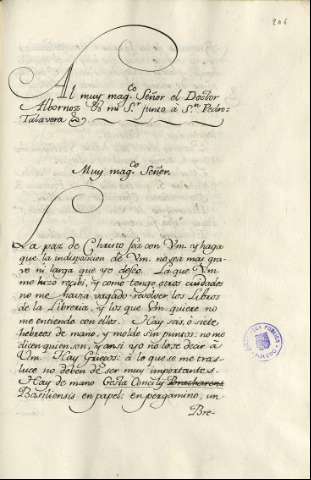 206
Al muy mag.co Señor el Doctor
Albornoz mi S.r junto à S.n Pedro=
Talavera
Muy mag.co Señor
La paz de Christo sea con Vm. y haga
que la indisposicion de Vm. no sea mas gra-
ve ni larga que yo deseo. La que Vm.
me hizo recibi, y como tengo otros cuidados
no me havia vagado revolver los Libros
de la Libreria, y los que Vm. quiere no
me entiendo con ellos. Hay seis, ó siete
hebreos de mano, y molde sin puncos: no me
dicen quien son, y ansi yo no lo se decir à
Vm. Hay Griegos: à lo que se me tras-
luce no deben de ser muy importantes.
Hay de mano Gesta Concilij
Basiliensis en papel: en pergamino, un
Bre-